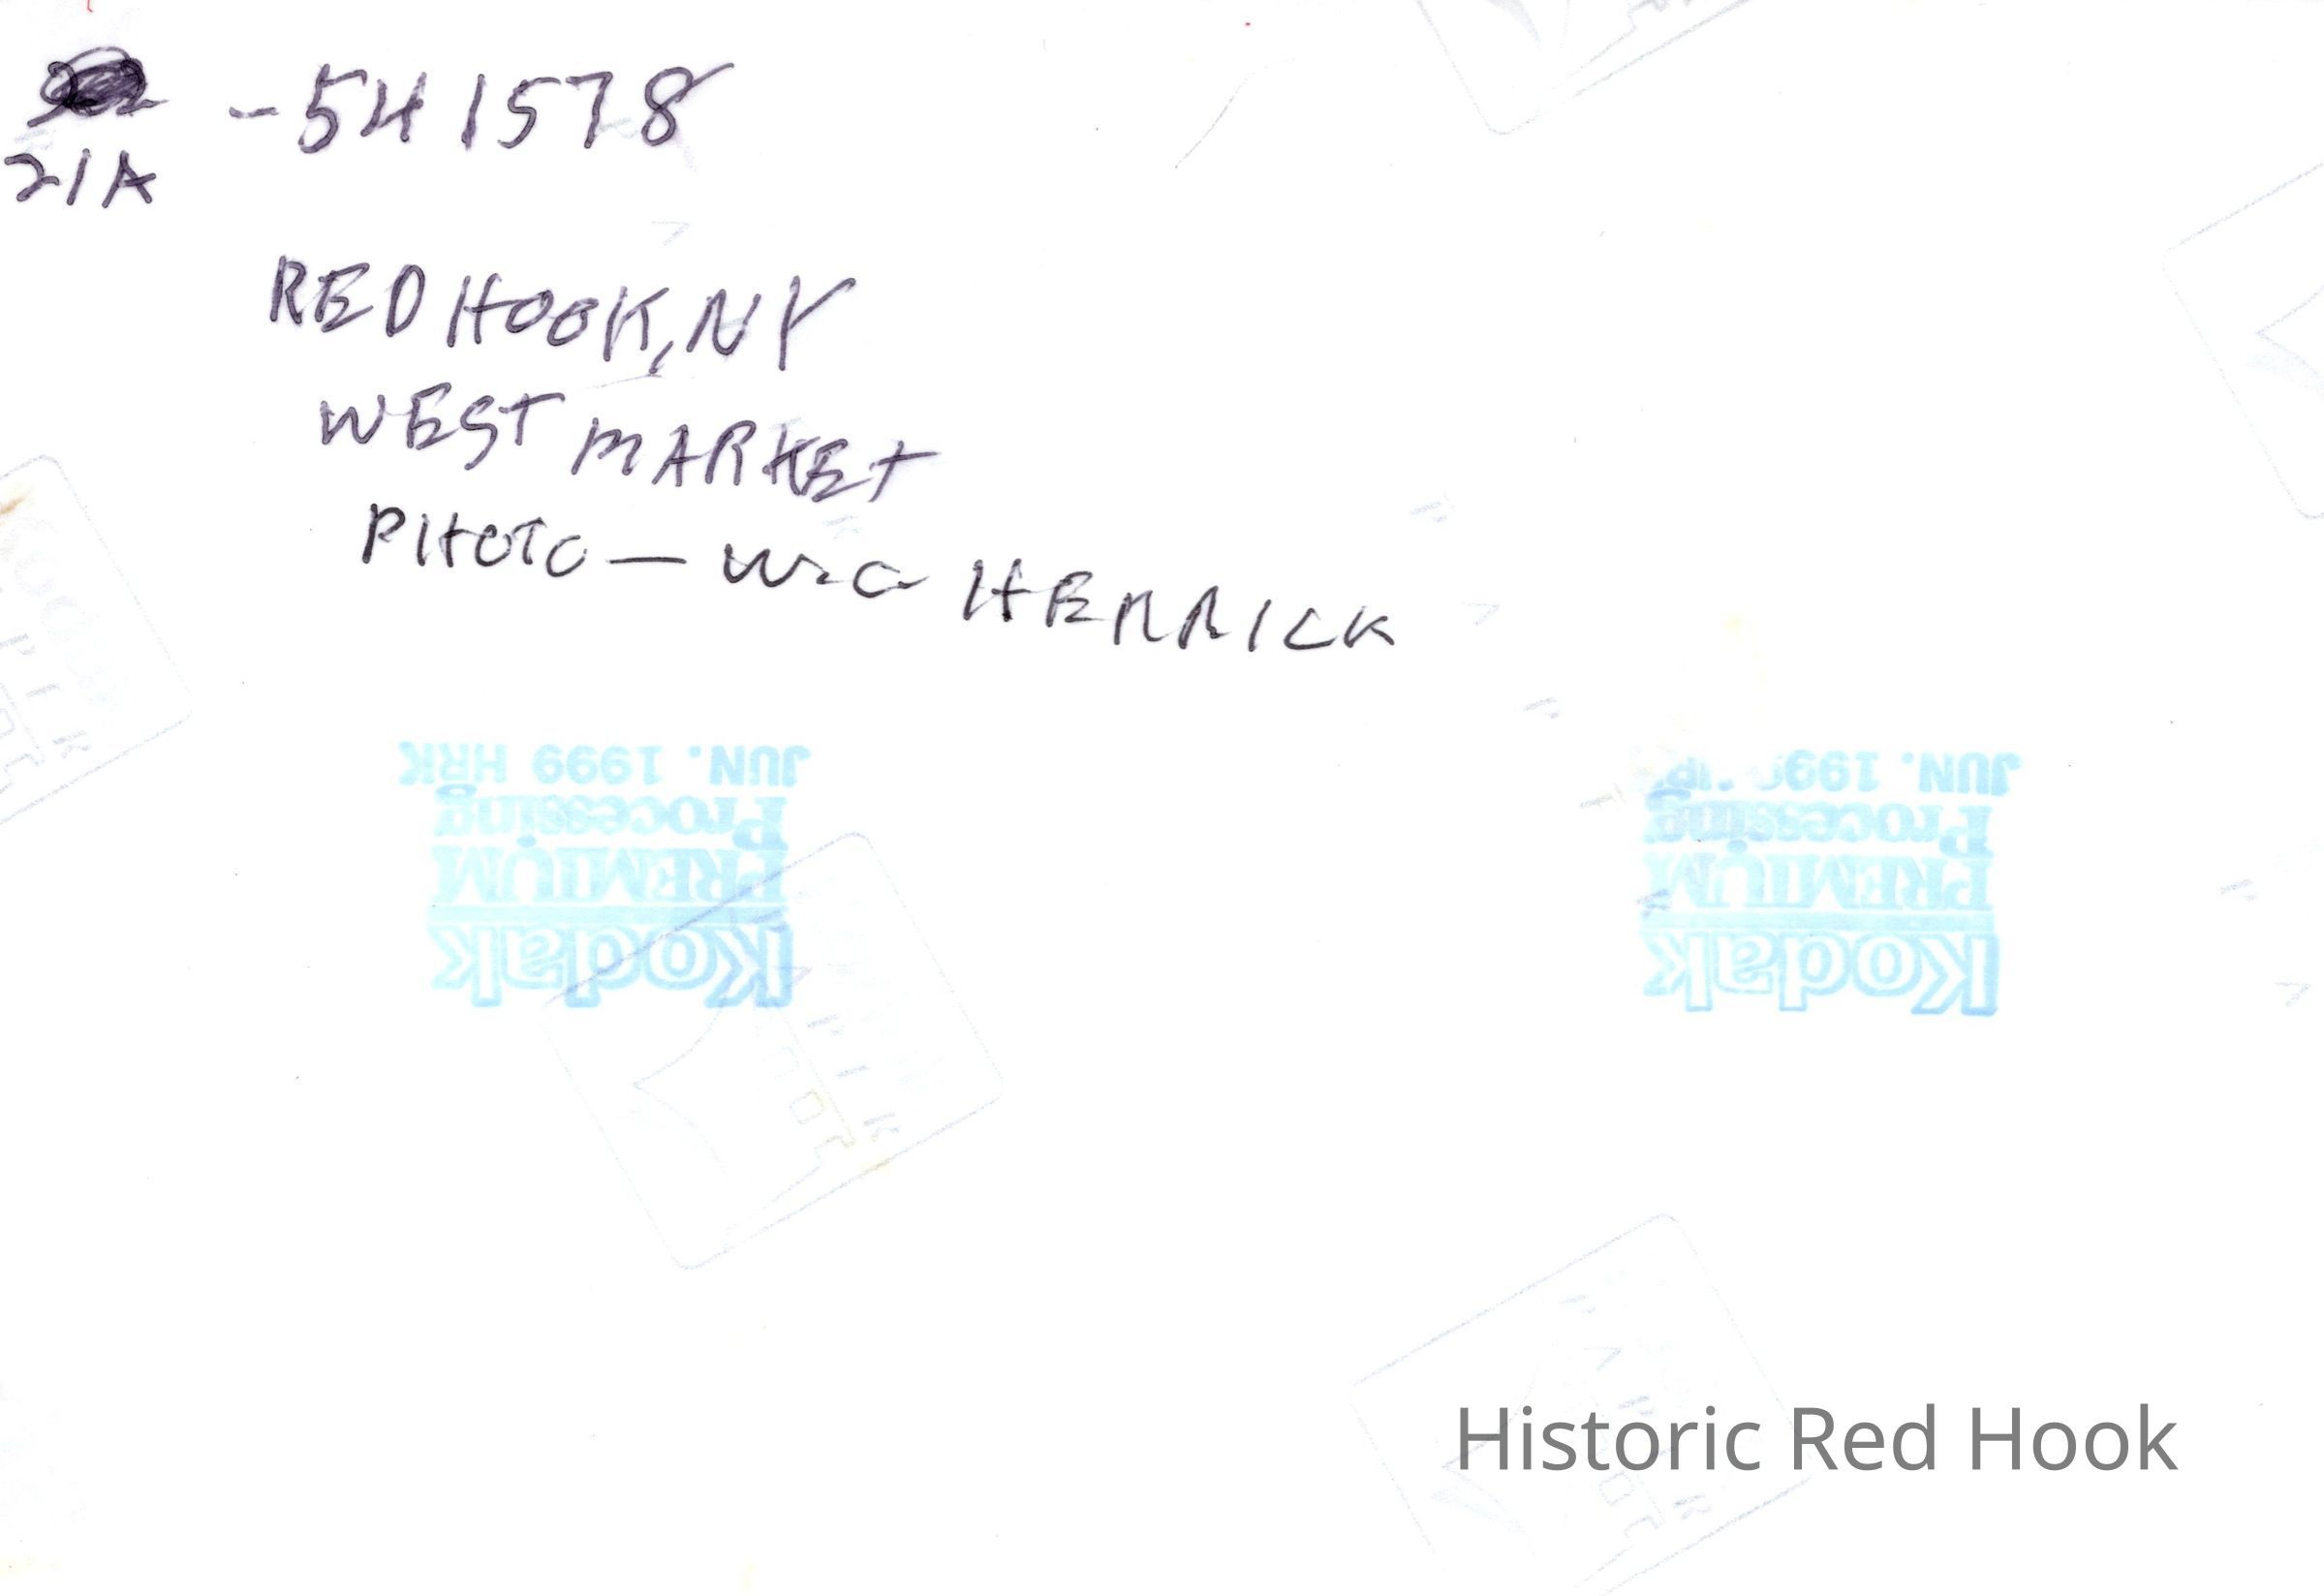 - 541578
21A
RED HOOK, NY
WEST MARKET
PHOTO — HERRICK
JUN. 1999 HRK
Processing
PREMIUM
Kodak
JUN. 199
Processing
PREMIUM
Kodak
Historic Red Hook